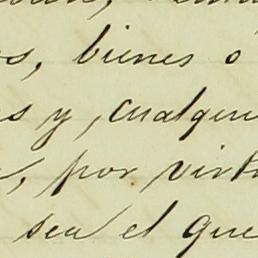 s, bienes ó
s y, cualquie
, por virt
sea el que